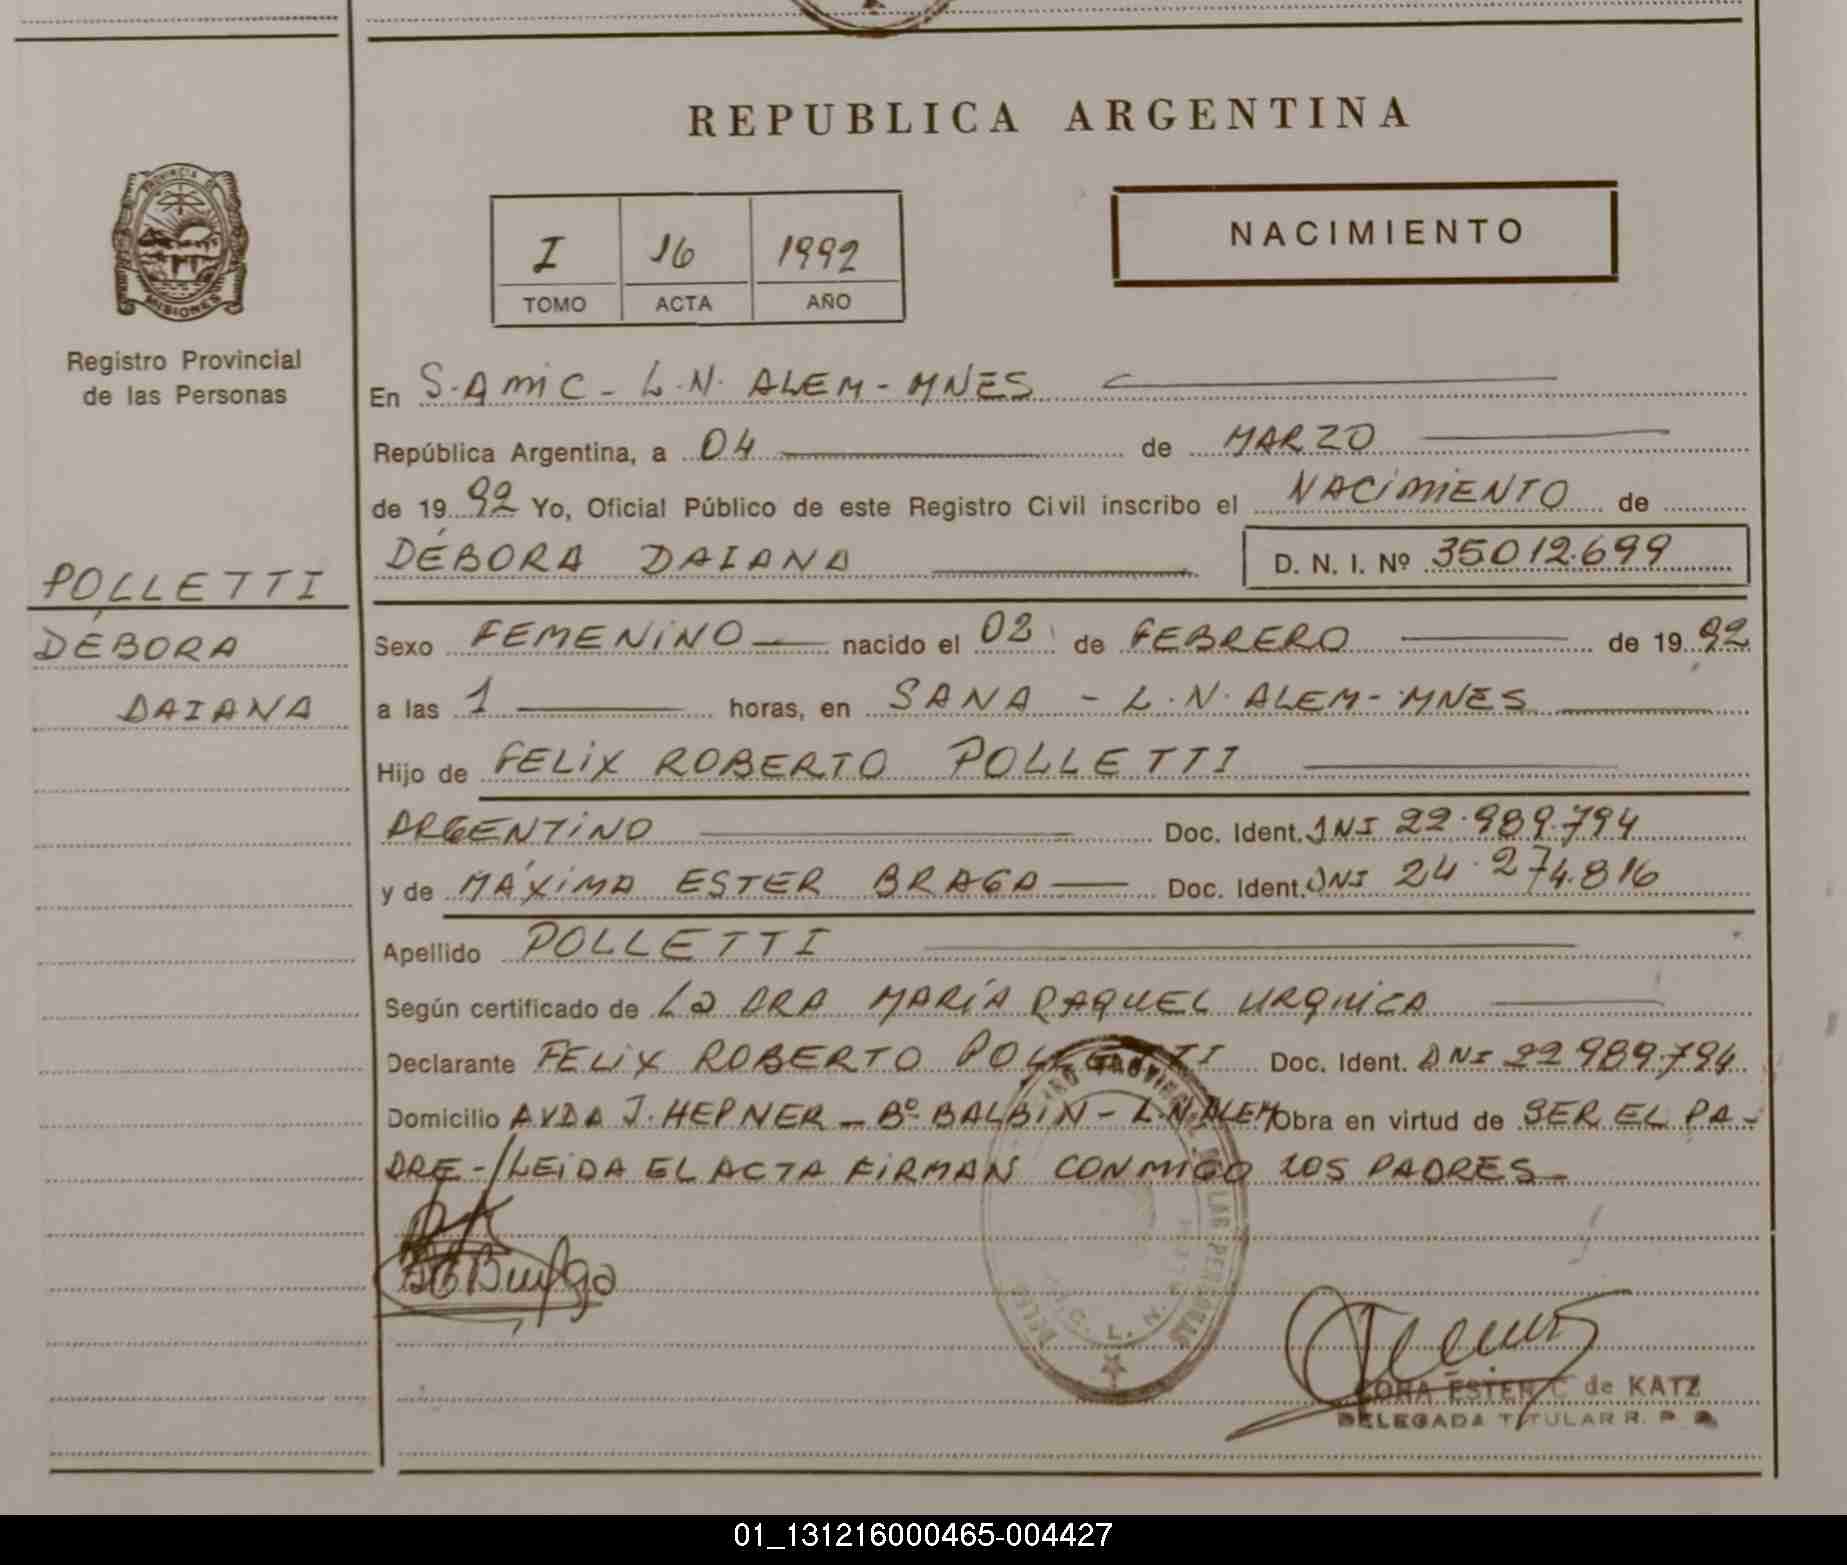 REPUBLICA ARGENTINA
PROVINCIA DE
MISIONES
Registro Provincial
de las Personas
I 16 1992
TOMO ACTA AÑO
NACIMIENTO
En S. Amic - L.N. ALEM - MNES
República Argentina, a 04 de MARZO
de 1992 Yo, Oficial Público de este Registro Civil inscribo el NACIMIENTO de
DÉBORA DAIANA D. N. I. Nº 35012.699
POLLETTI
DÉBORA
DAIANA
Sexo FEMENINO nacido el 02 de FEBRERO de 1992
a las 1 horas, en SANA - L.N. ALEM - MNES
Hijo de FELIX ROBERTO POLLETTI
ARGENTINO Doc. Ident. DNI 22.989.794
y de MÁXIMA ESTER BRAGA Doc. Ident. DNI 24.274.816
Apellido POLLETTI
Según certificado de La DRA MARÍA RAQUEL
Declarante FELIX ROBERTO POLLETTI Doc. Ident. DNI 22 989.794
Domicilio AVDA J. HEPNER - Bº BALBIN - L.N. ALEM Obra en virtud de SER EL PA-
DRE-/LEIDA EL ACTA FIRMAN CONMIGO LOS PADRES
ESTER C de KATZ
DELEGADA TITULAR R. P.
01_131216000465-004427